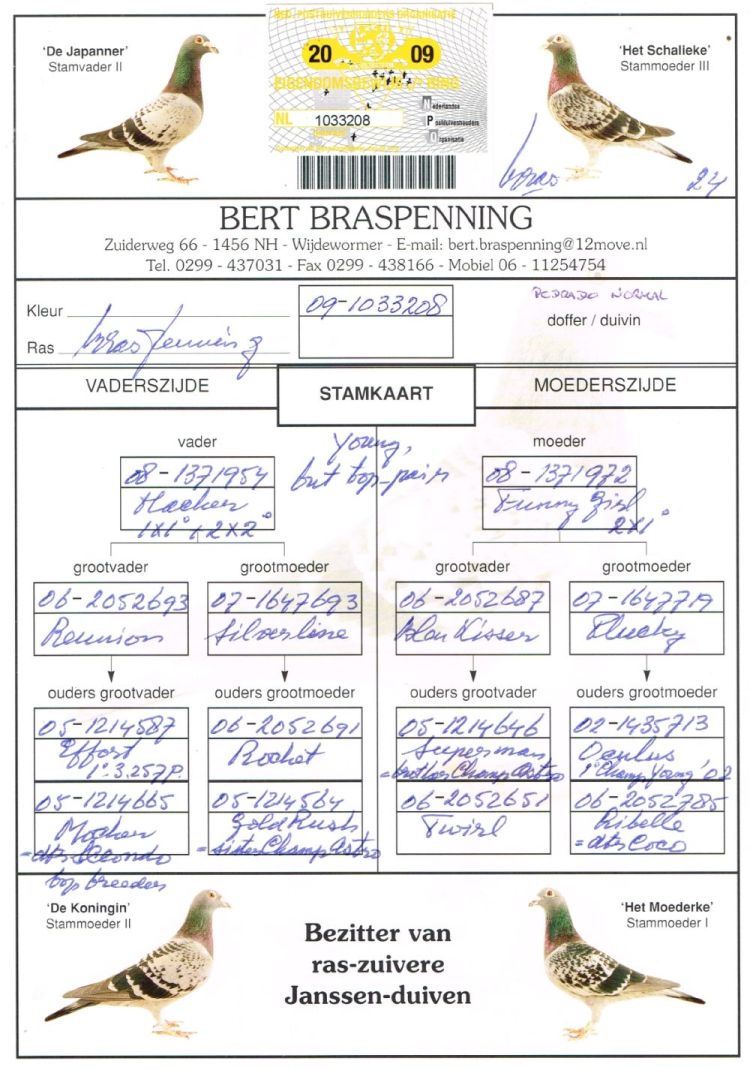 NED. POSTDUIVENHOUDERS ORGANISATIE
'De Japanner'
Stamvader II
20 09
'Het Schalieke'
Stammoeder III
EIGENDOMSBEWIJS RING
NL 1033208
Nederlandse
Postduivenhouders
Organisatie
24
BERT BRASPENNING
Zuiderweg 66 - 1456 NH - Wijdewormer - E-mail: bert.braspenning@12move.nl
Tel. 0299 - 437031 - Fax 0299 - 438166 - Mobiel 06 - 11254754
Kleur
09-1033208
PEDRADO NORMAL
doffer / duivin
Ras Braspenning
VADERSZIJDE
STAMKAART
MOEDERSZIJDE
Young,
but top-pair
vader
moeder
08-1371954
08-1371972
Hacker
Funny Girl
1X1° + 2X2°
2X1°
grootvader
grootmoeder
grootvader
grootmoeder
06-2052693
07-1647693
06-2052687
07-1647719
Reunion
Silverline
Blau Kisser
Plucky
ouders grootvader
ouders grootmoeder
ouders grootvader
ouders grootmoeder
05-1214587
06-2052691
05-1214646
02-1435713
Effort
Rocket
Superman
Oculus
1°.3.257p.
=brother Champ Astro
1° Champ Young '02
05-1214665
05-1214564
06-2052651
06-2052785
Gold Rush
Twirl
Ribelle
=dtr Secondo
=sister Champ Astro
=dtr Coco
top breeders
'De Koningin'
Stammoeder II
Bezitter van
ras-zuivere
Janssen-duiven
'Het Moederke'
Stammoeder I